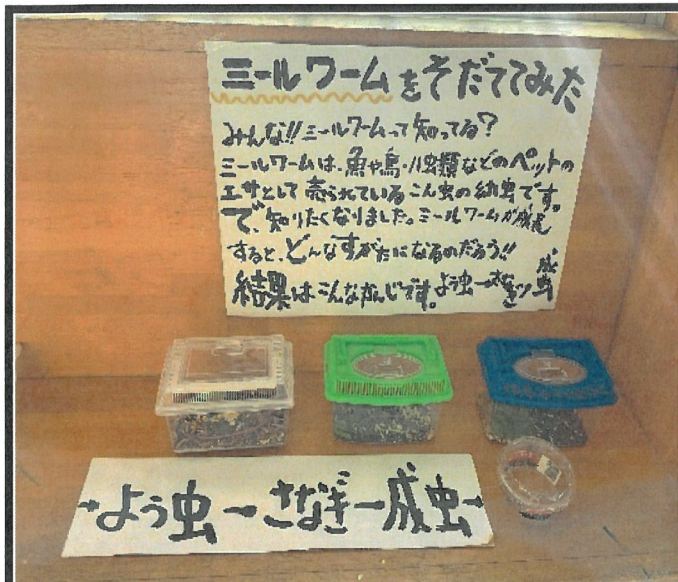 ミールワームをそだててみた
みんな!!ミールワームって知ってる?
ミールワームは、魚や鳥・ハ虫類などのペットの
エサとして売られているこん虫の幼虫です。
で、知りたくなりました。ミールワームが成長
すると、どんなすがたになるのだろう!!
結果はこんなかんじです。よう虫→さなぎ→成虫
→よう虫→さなぎ→成虫→